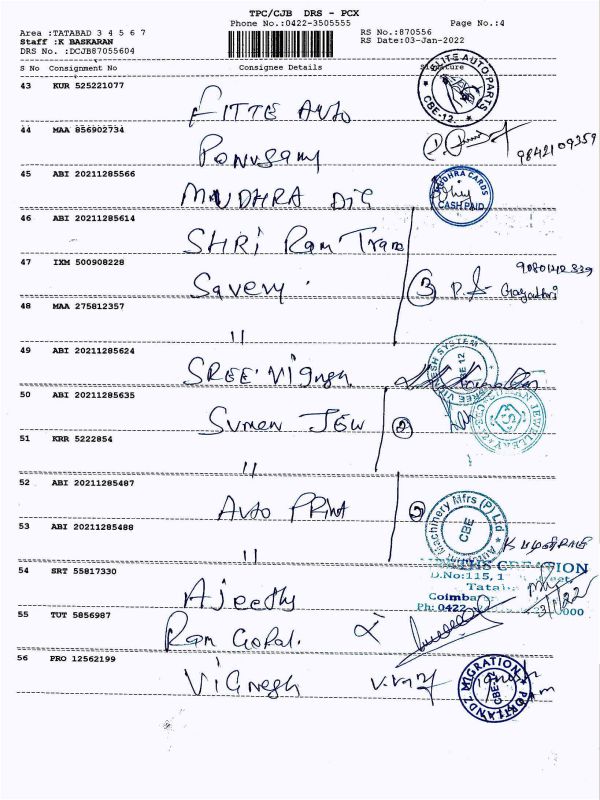 TPC/CJB DRS - PCX
Phone No.:0422-3505555
Page No.:4
Area :TATABAD 3 4 5 6 7
RS No.:870556
Staff :K BASKARAN
RS Date:03-Jan-2022
DRS No. :DCJB87055604
S No Consignment No Consignee Details Signature
43 KUR 525221077
FITTE Auto
ELITE AUTO PARTS
CBE-12.
44 MAA 856902734
Ponusamy
9842109359
45 ABI 20211285566
MUDHRA
MUDHRA CARDS
CASH PAID
46 ABI 20211285614
SHRI Ram Trans
47 IXM 500908228
Savery
3
Gayathri
48 MAA 275812357
"
49 ABI 20211285624
SREE Vignesh
SREE VIGNESH SYSTEM
CBE 12
50 ABI 20211285635
Sumon JEW
2
JEWELLERY
51 KRR 5222854
"
52 ABI 20211285487
Auto PRint
2
Machinery Mfrs (P) Ltd
CBE
53 ABI 20211285488
"
54 SRT 55817330
Ajeeth
CREATION
D.No:115, 1
Street,
Tatabad
Coimba
Ph: 0422
000
3/1/22
55 TUT 5856987
Ram Gopal.
56 PRO 12562199
Vignesh
PORTLANDZ MIGRATION
CBE-12